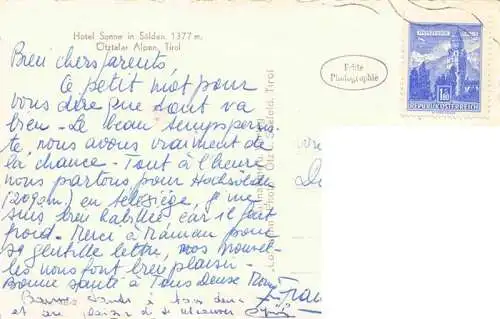 Hotel Sonne in Sölden, 1377 m.
Ötztaler Alpen, Tirol
Bien chers parents
Ce petit mot pour
vous dire que tout va
bien - Le beau temps persis-
te, nous avons vraiment de
la chance - Tout à l'heure
nous partons pour Hochsölden
(2092m) en télésiège, je me
suis bien habillée car il fait
froid - Merci à Maman pour
sa gentille lettre, vos nouvel-
les nous font bien plaisir -
Bonne santé à Tous Deux
à tous deux
et au plaisir de
Echte
Photographie
REPUBLIK ÖSTERREICH